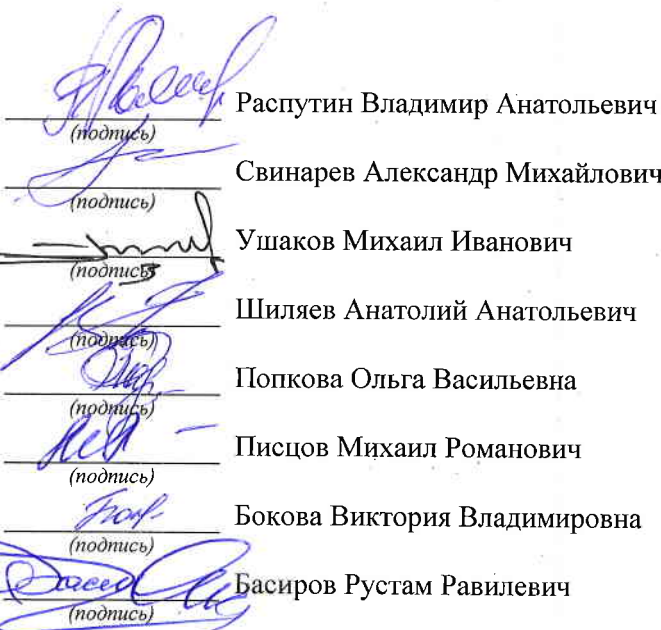 Распутин Владимир Анатольевич
(подпись)
Свинарев Александр Михайлович
(подпись)
Ушаков Михаил Иванович
(подпись)
Шиляев Анатолий Анатольевич
(подпись)
Попкова Ольга Васильевна
(подпись)
Писцов Михаил Романович
(подпись)
Бокова Виктория Владимировна
(подпись)
Басиров Рустам Равилевич
(подпись)